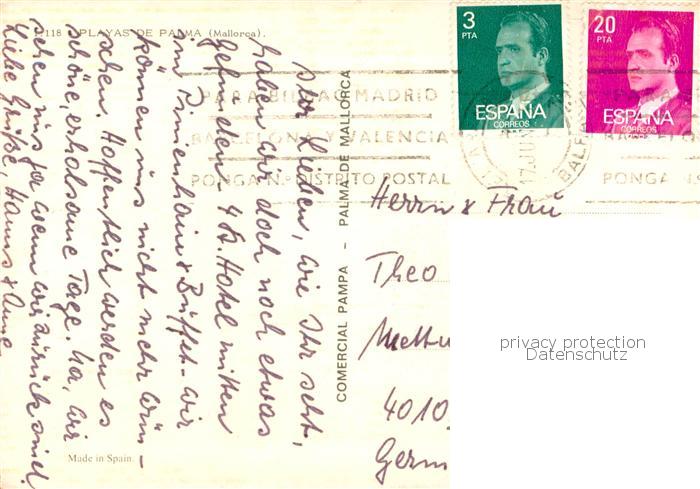 118 - PLAYAS DE PALMA (Mallorca).
Ihr Lieben, wie Ihr seht,
haben wir doch noch etwas
gefunden. 4 St. Hotel mitten
im Pinienhain & Büffet - wir
können uns nicht mehr wün-
schen. Hoffentlich werden es
schöne, erholsame Tage. Na, wir
sehen uns ja wenn wir zurück sind.
Liebe Grüße, Hanns & Anne
Made in Spain.
COMERCIAL PAMPA - PALMA DE MALLORCA
3
PTA
ESPAÑA
CORREOS
20
PTA
ESPAÑA
CORREOS
PARA BILBAO MADRID
BARCELONA Y VALENCIA
PONGA N.º DISTRITO POSTAL
17 JU
BALE
PONGA N.
Herrn & Frau
Theo
Mettm
4010
Germ
privacy protection
Datenschutz